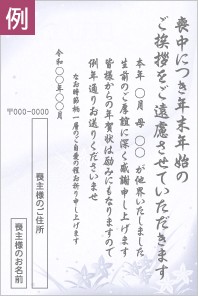 例
喪中につき年末年始の
ご挨拶をご遠慮させていただきます
本年 〇月 母 〇〇 が他界いたしました
生前のご厚誼に深く感謝申し上げます
皆様からの年賀状は励みにもなりますので
例年通りお送りくださいませ
なお時節柄一層のご自愛の程お祈り申し上げます
令和〇〇年〇〇月
〒000-0000
喪主様のご住所
喪主様のお名前